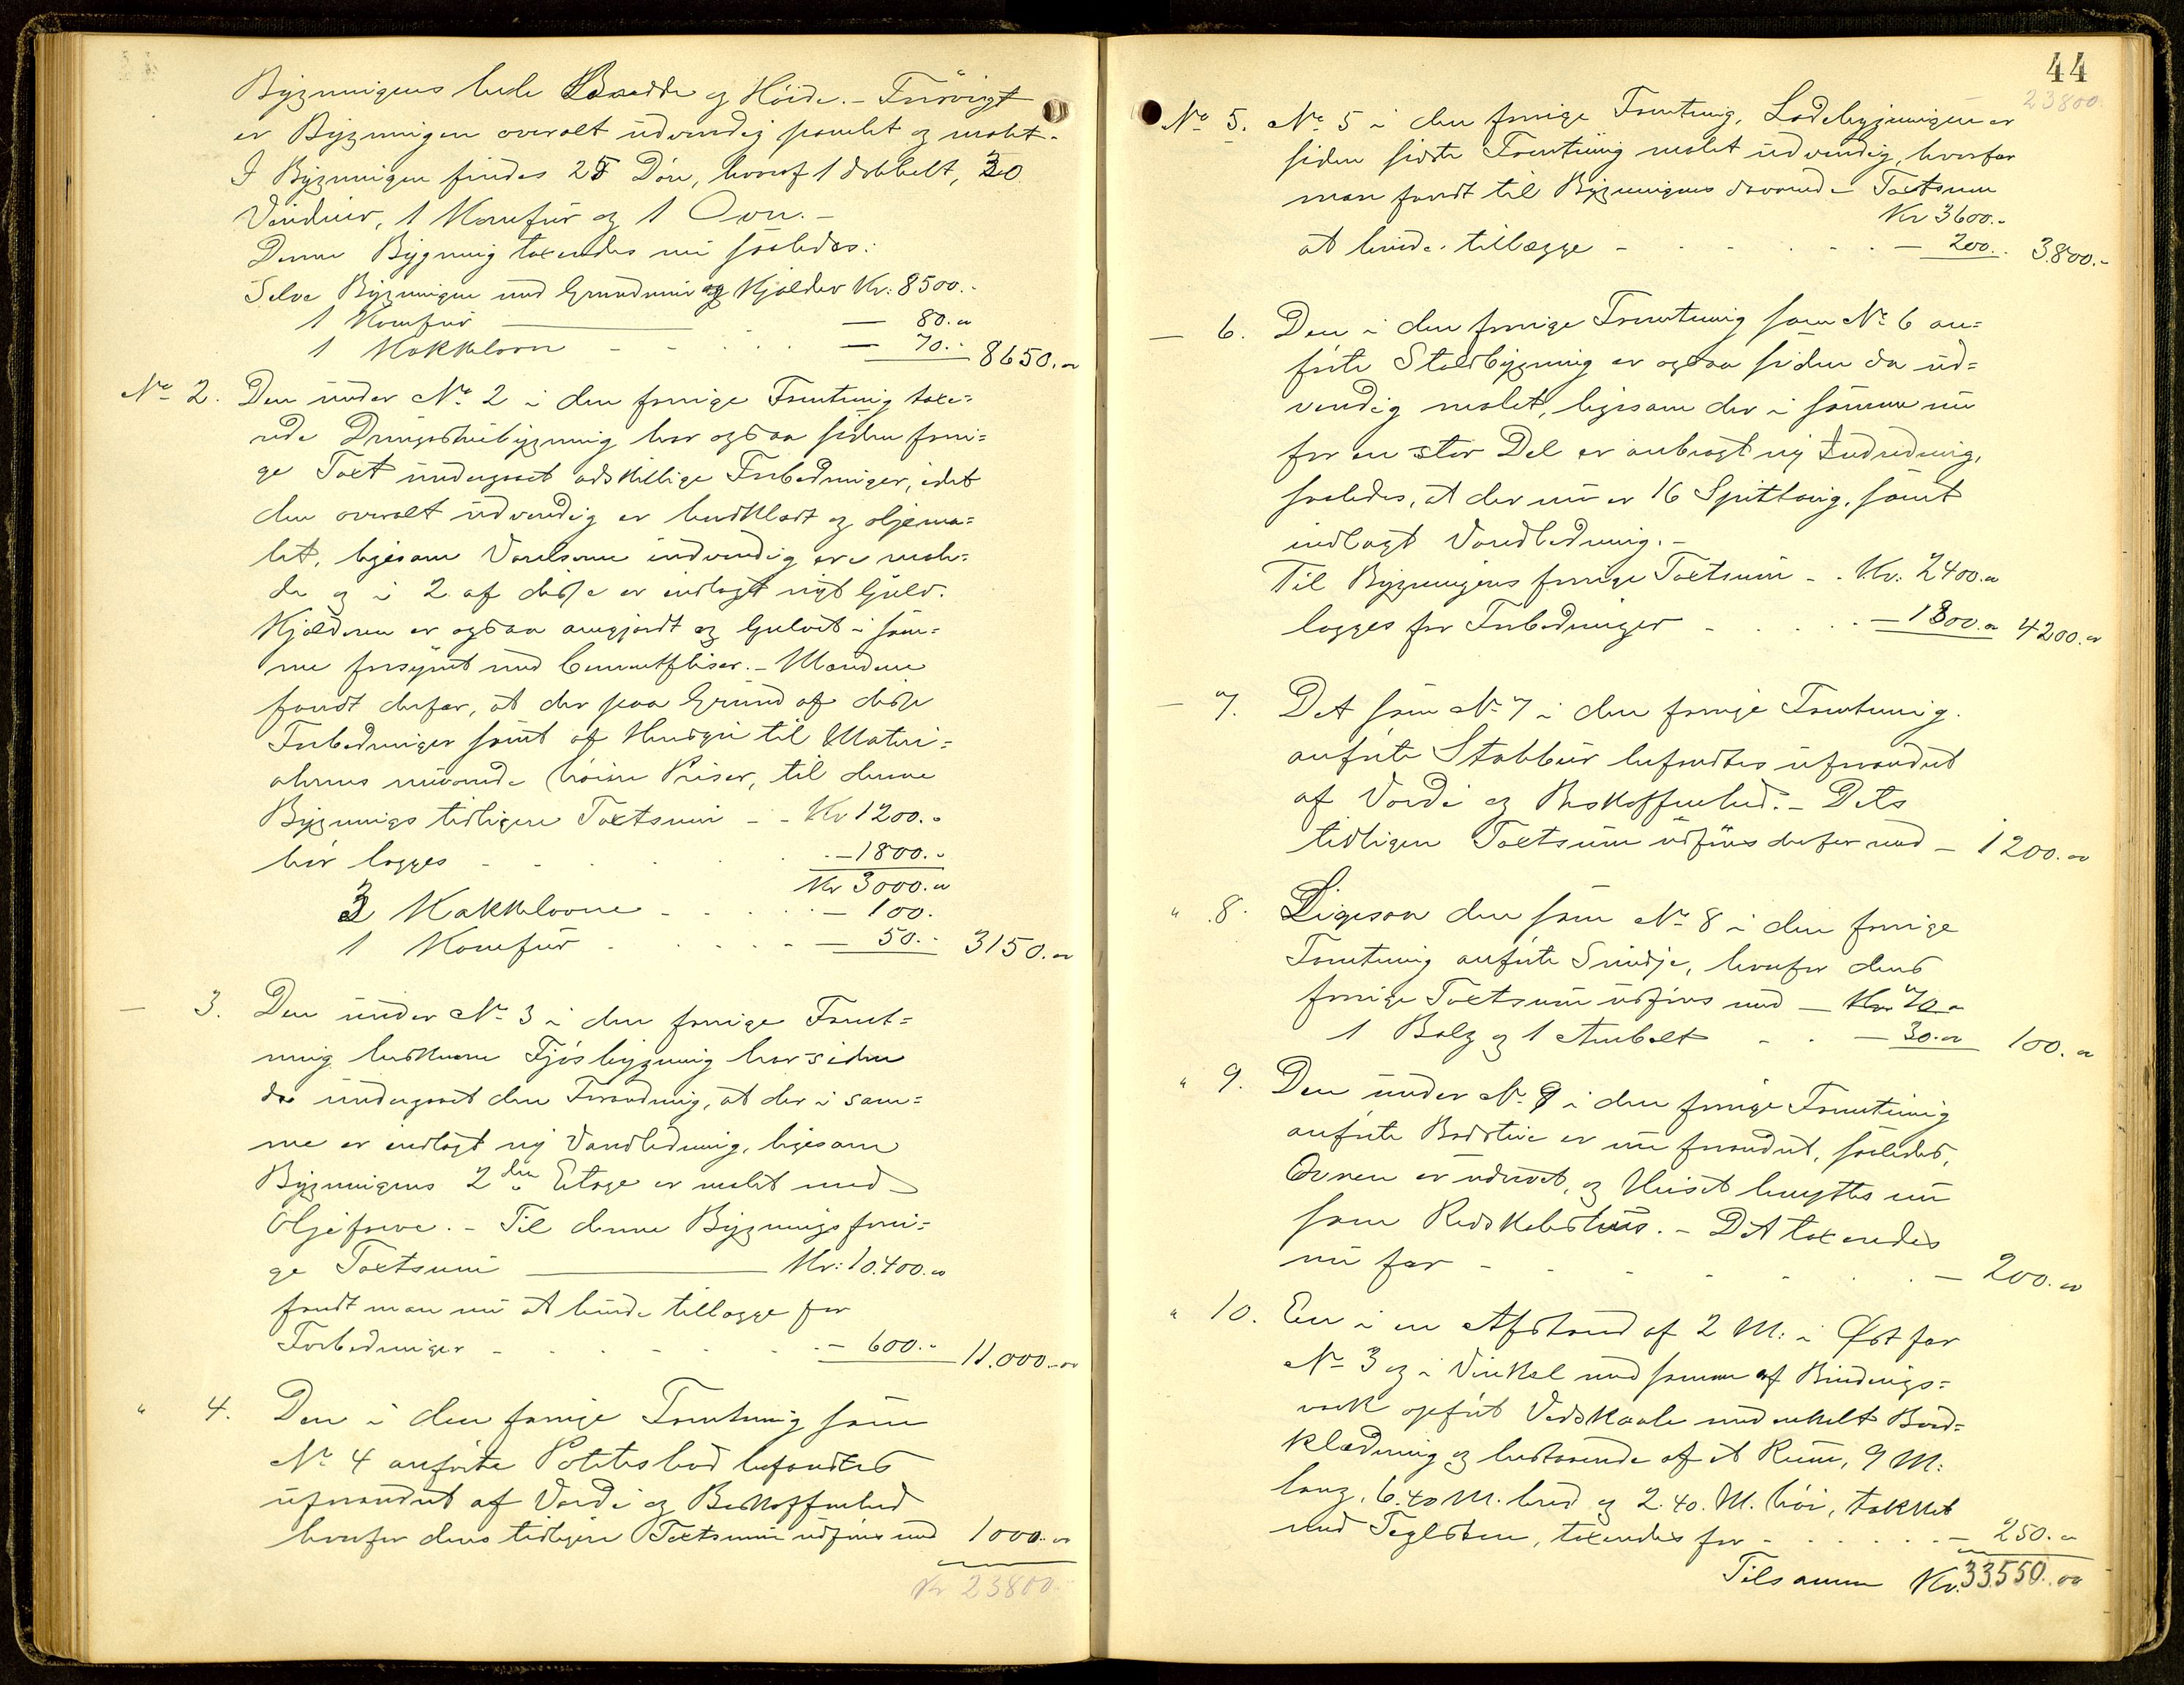 Bygningens hele Bredde og Høide. – Forøvrigt
er Bygningen overalt udvendig panelet og malet.
I Bygningen findes 25 Døre, hvoraf 1 dobbelt, 30
Vinduer, 1 Komfur og 1 Ovn. –
Denne Bygning taxeredes nu saaledes:
Selve Bygningen med Grundmur og Kjælder Kr: 8500. -
1 Komfur — 80. "
1 Kakkelovn — 70. - 8650. "
No 2. Den under No 2 i den forrige Forretning taxe=
rede Drengestuebygning har ogsaa siden forri=
ge Taxt undergaaet adskillige Forbedringer, idet
den overalt udvendig er bordklædt og oljema=
let, ligesom Værelserne indvendig ere male=
de og i 2 af disse er indlagt nyt Gulv.
Kjælderen er ogsaa omgjordt og Gulvet i sam=
me forsynet med Cementfliser. – Mændene
fandt derfor, at der paa Grund af disse
Forbedringer samt af Hensyn til Materi=
alernes nuværende høiere Priser, til denne
Bygnings tidligere Taxtsum - - Kr 1200. -
bør lægges - 1800. -
Kr 3000. "
3 Kakkelovne - 100.
1 Komfur - 50. - 3150. "
— 3. Den under No 3 i den forrige Forret=
ning beskrevne Fjøsbygning har siden
da undergaaet den Forandring, at der i sam=
me er indlagt ny Vandledning, ligesom
Bygningens 2den Etage er malet med
Oljefarve. – Til denne Bygnings forri=
ge Taxtsum — Kr: 10.400. "
fandt man nu at burde tillægge for
Forbedringer - 600. - 11.000. "
" 4. Den i den forrige Forretning som
No 4 anførte Potetesbod befandtes
uforandret af Værdi og Beskaffenhed
hvorfor dens tidligere Taxtsum udføres med 1000. "
Kr 23800. -
44
23800
No 5. No 5 i den forrige Forretning, Ladebygningen er
siden sidste Forretning malet udvendig, hvorfor
man fandt til Bygningens daværende Taxtsum
Kr 3600. -
at burde tillægge - 200. - 3.800. -
— 6. Den i den forrige Forretning som No 6 an=
førte Staldbygning er ogsaa siden da ud=
vendig malet, ligesom der i samme nu
for en stor Del er anbragt ny Indredning,
saaledes, at der nu er 16 Spiltaug, samt
indlagt Vandledning. –
Til Bygningens forrige Taxtsum - - Kr: 2400. "
lægges for Forbedringer - 1800. " 4200. "
— 7. Det som No 7 i den forrige Forretning
anførte Stabbur befandtes uforandret
af Værdi og Beskaffenhed. – Dets
tidligere Taxtsum udføres derfor med — 1200. "
" 8. Ligesaa den som No 8 i den forrige
Forretning anførte Smidje, hvorfor dens
forrige Taxtsum udføres med — Kr 70 "
1 Bælg og 1 Ambolt - 30. " 100. "
" 9. Den under No 9 i den forrige Forretning
anførte Badstue er nu forandret, saaledes,
Ovnen er udrevet, og Huset benyttes nu
som Redskabshus. – Det taxeredes
nu for - 200. "
" 10. En i en Afstand af 2 M: i Øst for
No 3 og i Vinkel med samme af Bindings=
værk opført Vedskaale med enkelt Bord=
klædning og bestaaende af et Rum, 9 M:
lang, 6.40 M. bred og 2.40. M. høi, tækket
med Teglsten, taxeredes for - 250. "
Tilsammen Kr. 33.550. 00